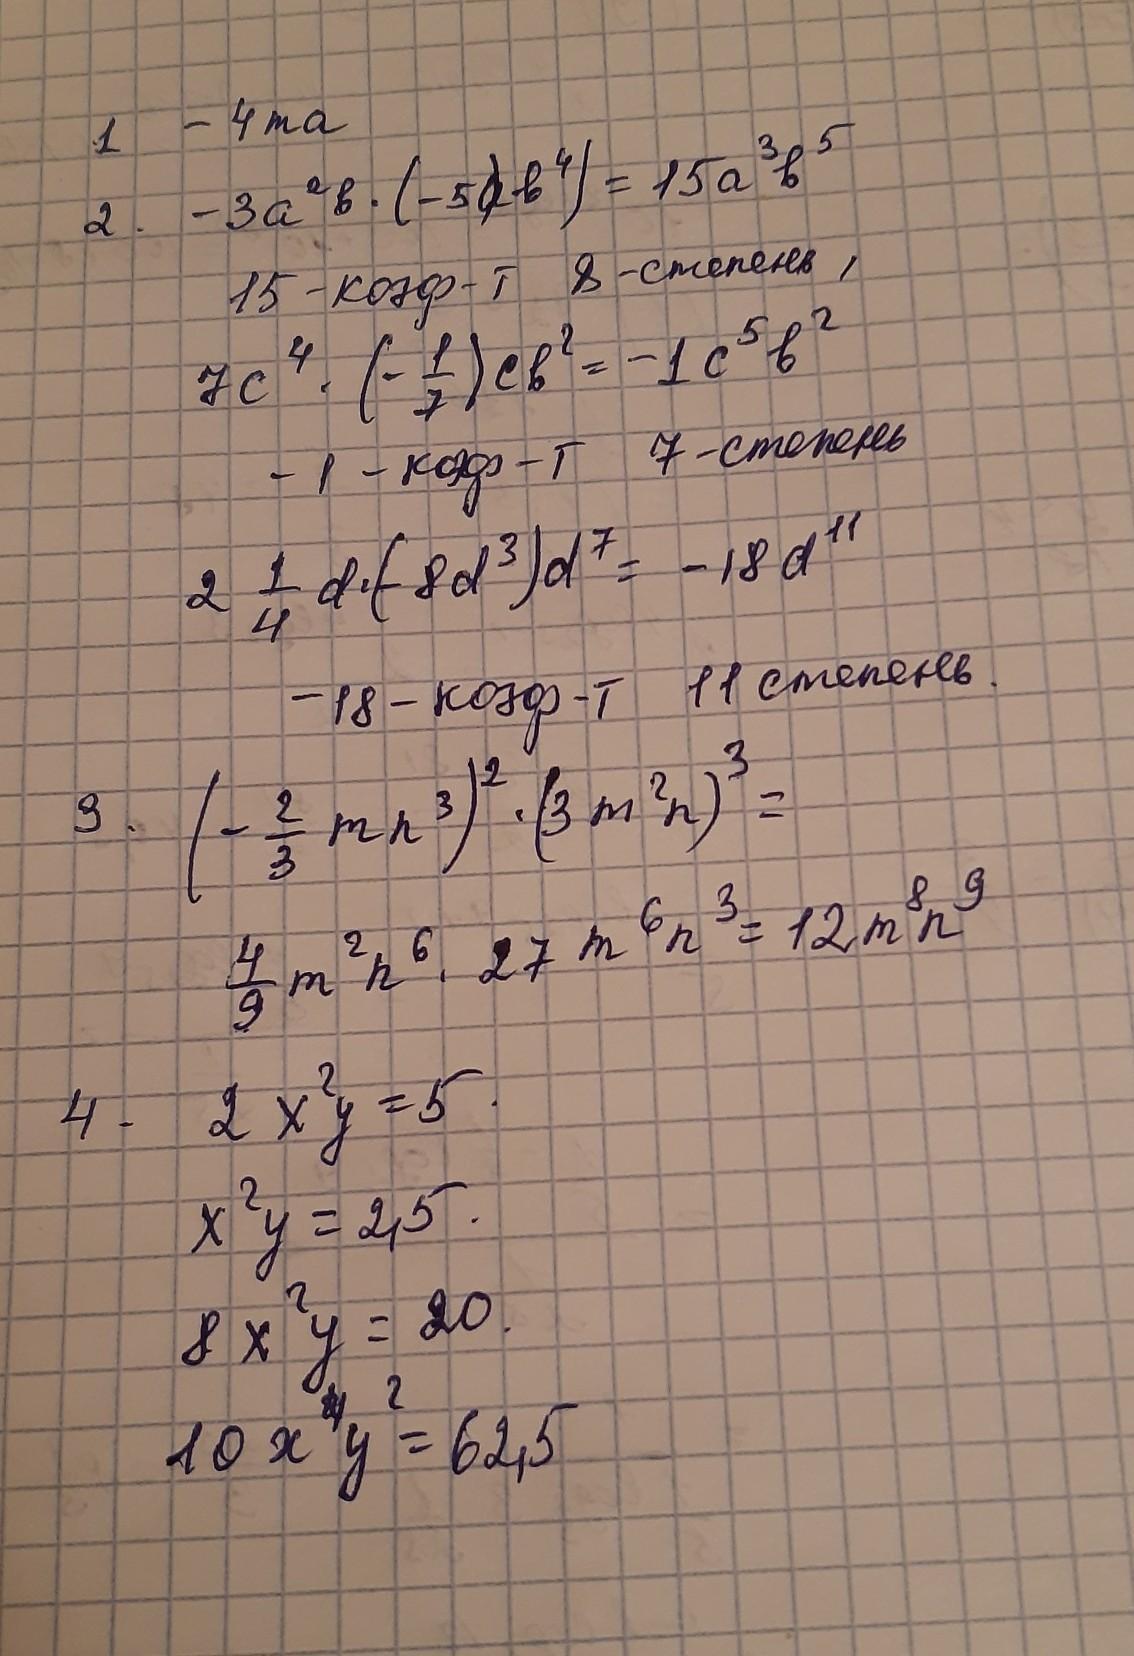 1 -4ma
2. -3a²b·(-5ab⁴)=15a³b⁵
15-коэф-т 8-степень,
7c⁴·(-1/7)cb²=-1c⁵b²
-1-коэф-т 7-степень
2 1/4 d·(-8d³)d⁷=-18d¹¹
-18-коэф-т 11 степень.
3. (-2/3 mn³)²·(3m²n)³=
4/9 m²n⁶·27m⁶n³=12m⁸n⁹
4. 2x²y=5.
x²y=2,5.
8x²y=20.
10x⁴y²=62,5